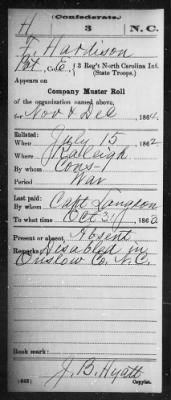 (Confederate.)
H 3 N. C.
F. Hardison
Pvt, Co. E, 3 Reg't North Carolina Inf.
(State Troops.)
Appears on
Company Muster Roll
of the organization named above,
for Nov & Dec, 1864.
Enlisted:
When July 15, 1862
Where Raleigh
By whom Cons-
Period War
Last paid:
By whom Capt
To what time Oct 31, 1863
Present or absent Absent
Remarks: Disabled in
Onslow Co, N.C.
Book mark:
J. B. Hyatt
(642) Copyist.